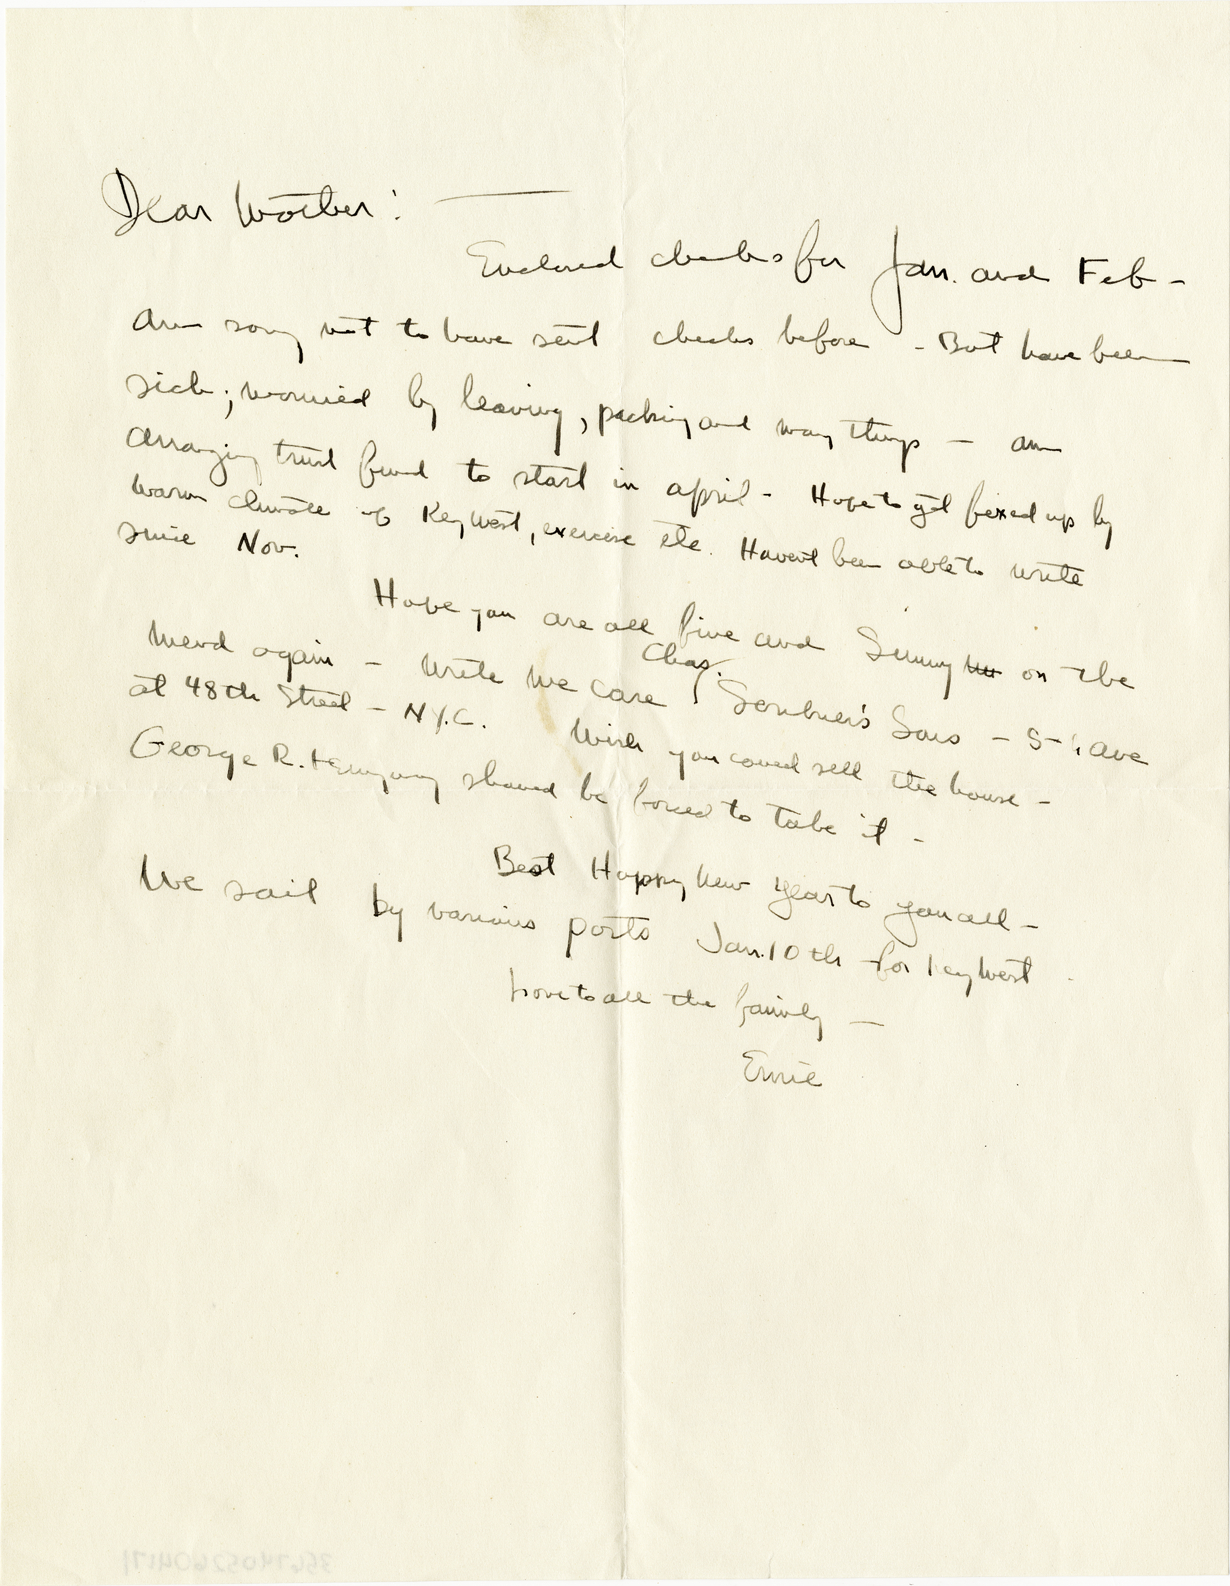 Dear Mother: —
Enclosed checks for Jan. and Feb —
Am sorry not to have sent checks before - But have been
sick; worried by leaving, packing and many things — am
arranging trust fund to start in april - Hope to get fixed up by
warm climate of Key West, exercise etc. Havent been able to write
since Nov.
Hope you are all fine and Sunny on the
mend again - Write me care Chas. Scribner's Sons - 5th ave
at 48th Street - N.Y.C. Wish you could sell the house -
George R. Hemingway should be forced to take it -
Best Happy New Year to you all -
We sail by various ports Jan. 10th for Key West
Love to all the family —
Ernie